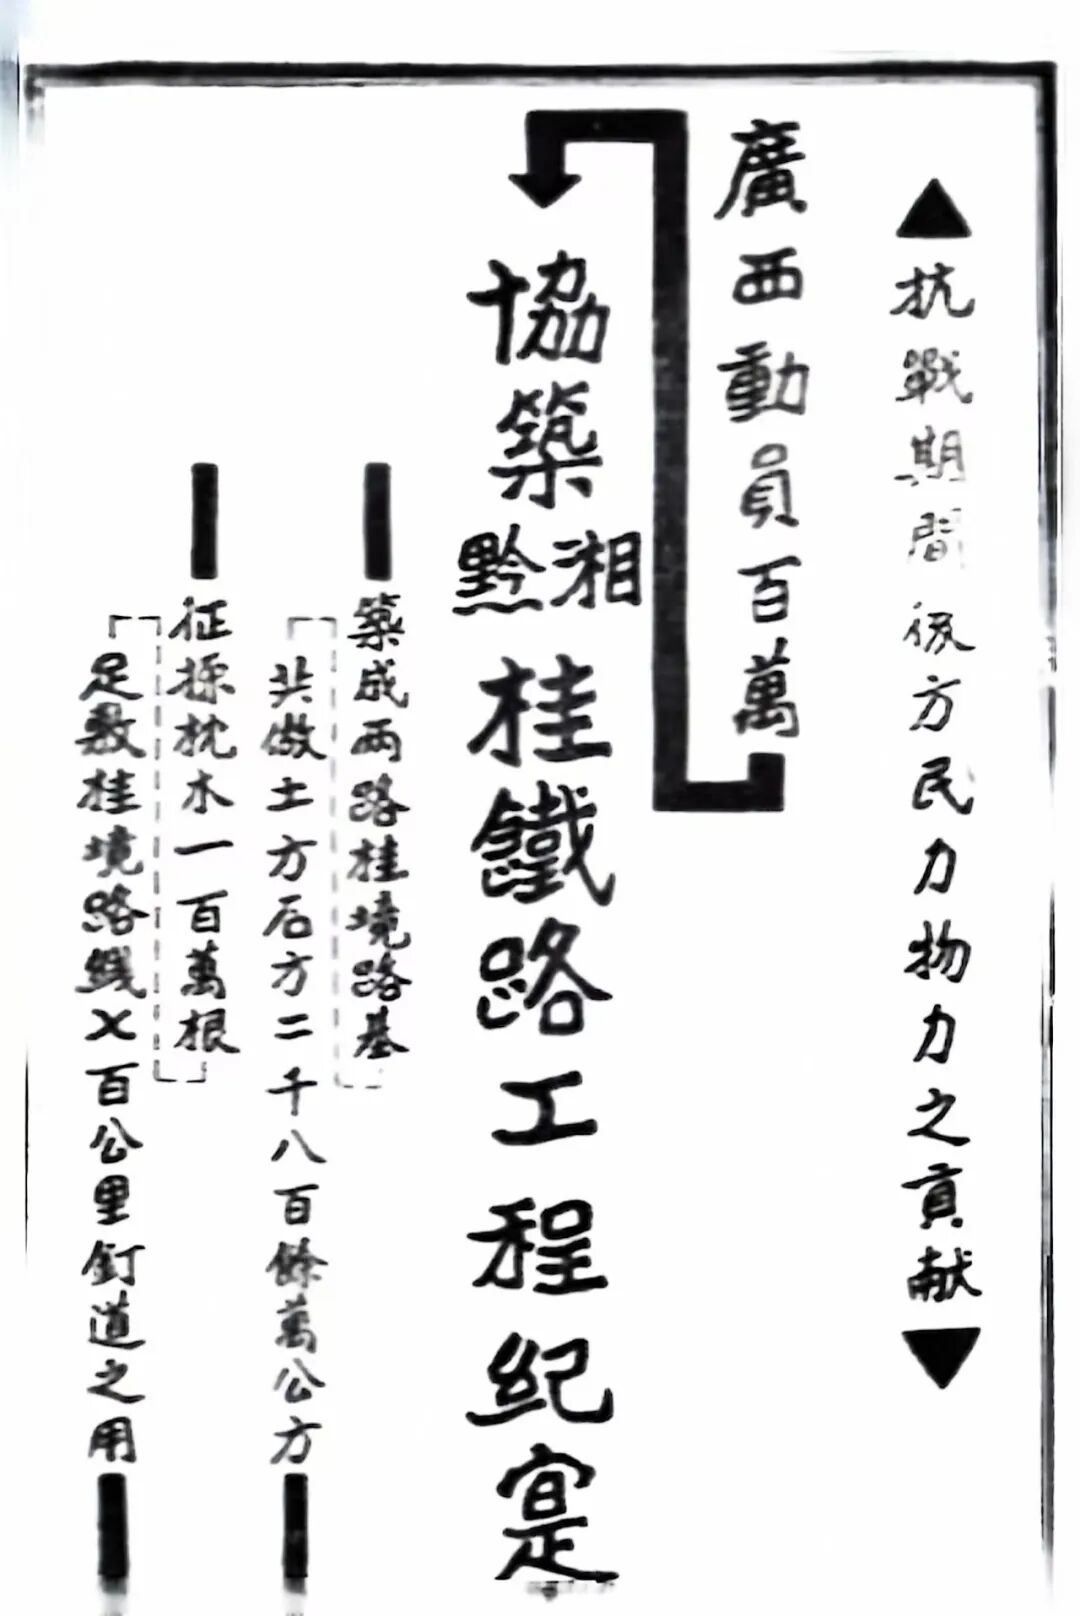 抗戰期間後方民力物力之貢献
廣西動員百萬
協築湘黔桂鐵路工程紀寔
築成兩路桂境路基
共做土方石方二千八百餘萬公方
征採枕木一百萬根
足敷桂境路綫七百公里釘道之用